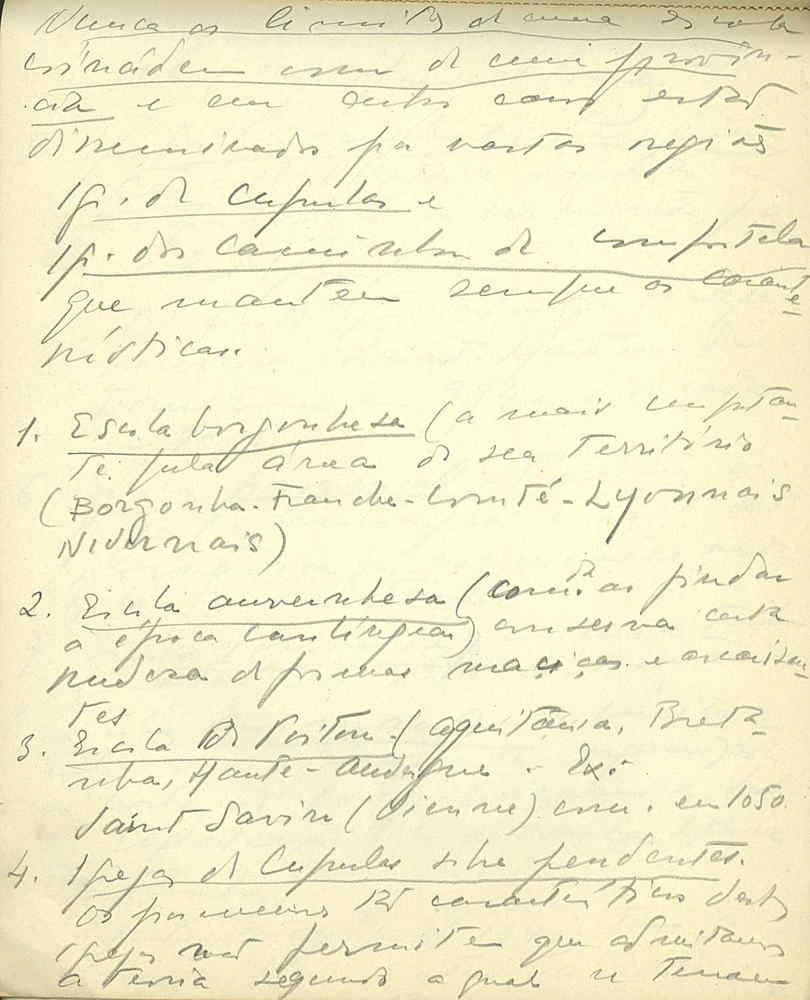 Nunca os limites de uma Escola
coincidem com de uma provín-
cia e em outros casos estão
disseminados por vastas regiões
Ig. de cupulas e
Ig. dos caminhos de compostela
que mantêm sempre os caract
e
rísticas.
1. Escola borgonhesa (a mais importan-
te pela área do seu território
(Borgonha - Franche-Comté - Lyonnais
Nivernais)
2. Escola auvernhesa (
a época carolíngia) conserva certa
rudeza de formas maciças e arcaizan-
tes
3. Escola de Poitou - (Aquitânia, Breta-
nha, Haute- Ex:
Saint Savin (Vienne) com. em 1050
4. Igrejas de Cupulas sobre pendentes.
Os pormenores característicos destas
igrejas não permitem que admitamos
a teoria segundo a qual se